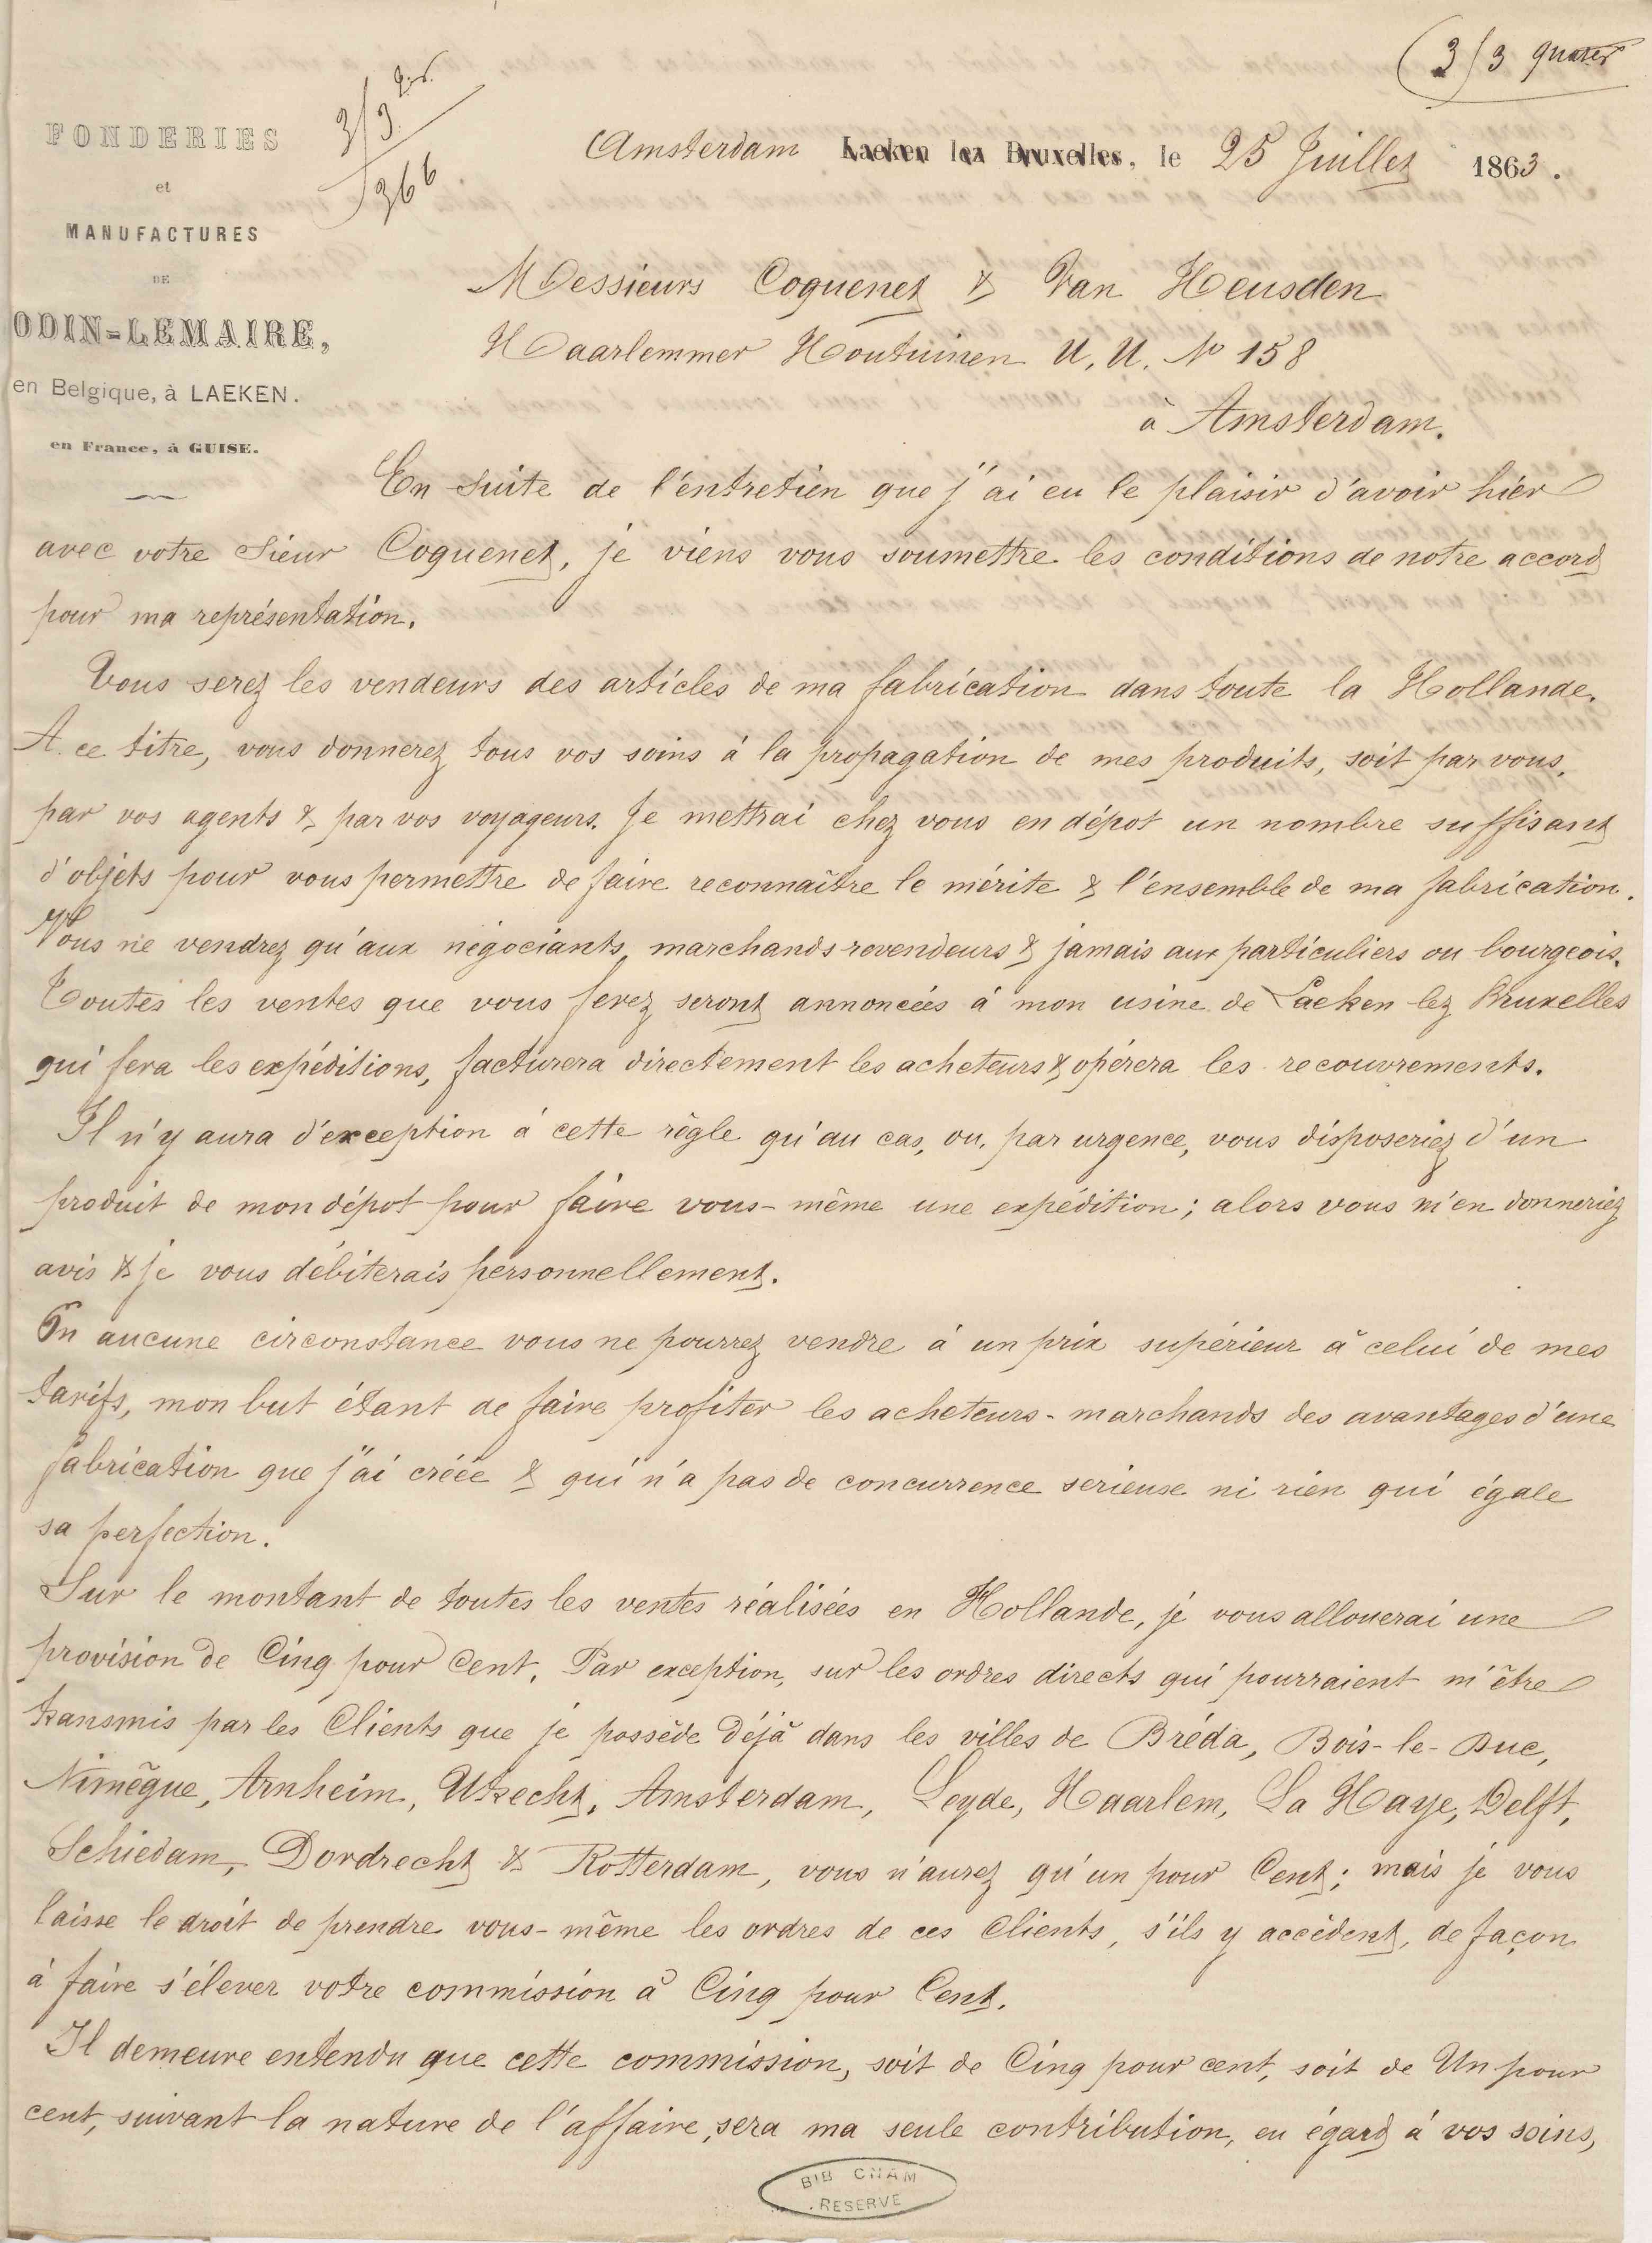 (3/3 quater
3/3 qr.
366
FONDERIES
et
MANUFACTURES
DE
ODIN-LEMAIRE,
en Belgique, à LAEKEN.
en France, à GUISE.
Amsterdam Laeken lez Bruxelles, le 25 Juillet 1863.
Messieurs Coquenet & Van Heusden
Haarlemmer Houtuinen U, U. No 158
à Amsterdam.
En suite de l'entretien que j'ai eu le plaisir d'avoir hier
avec votre Sieur Coquenet, je viens vous soumettre les conditions de notre accord
pour ma représentation.
Vous serez les vendeurs des articles de ma fabrication dans toute la Hollande.
A ce titre, vous donnerez tous vos soins à la propagation de mes produits, soit par vous,
par vos agents & par vos voyageurs. Je mettrai chez vous en dépot un nombre suffisant
d'objets pour vous permettre de faire reconnaître le mérite & l'ensemble de ma fabrication.
Vous ne vendrez qu'aux négociants, marchands revendeurs & jamais aux particuliers ou bourgeois.
Toutes les ventes que vous ferez seront annoncées à mon usine de Laeken lez Bruxelles
qui fera les expéditions, facturera directement les acheteurs & opérera les recouvrements.
Il n'y aura d'exception à cette règle qu'au cas, ou, par urgence, vous disposeriez d'un
produit de mon dépot pour faire vous-même une expédition; alors vous m'en donneriez
avis & je vous débiterais personnellement.
En aucune circonstance vous ne pourrez vendre à un prix supérieur à celui de mes
tarifs, mon but étant de faire profiter les acheteurs-marchands des avantages d'une
fabrication que j'ai créée & qui n'a pas de concurrence serieuse ni rien qui égale
sa perfection.
Sur le montant de toutes les ventes réalisées en Hollande, je vous allouerai une
provision de Cinq pour Cent. Par exception, sur les ordres directs qui pourraient m'être
transmis par les Clients que je possède déjà dans les villes de Bréda, Bois-le-Duc,
Nimègue, Arnheim, Utrecht, Amsterdam, Leyde, Haarlem, La Haye, Delft,
Schiedam, Dordrecht & Rotterdam, vous n'aurez qu'un pour Cent; mais je vous
laisse le droit de prendre vous-même les ordres de ces Clients, s'ils y accèdent, de façon
à faire s'élever votre commission à Cinq pour Cent.
Il demeure entendu que cette commission, soit de Cinq pour cent, soit de Un pour
cent, suivant la nature de l'affaire, sera ma seule contribution, eu égard à vos soins,
BIB CNAM
RESERVE